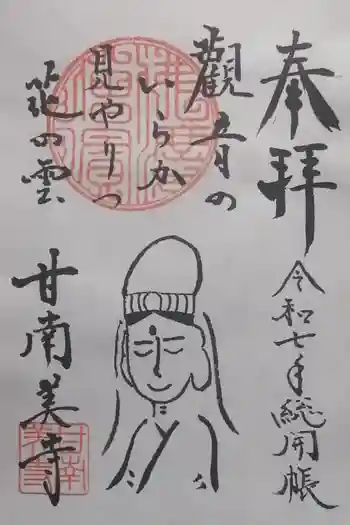 奉拝
令和七年総開帳
観音の
いらか
見やりつ
花の雲
甘南美寺